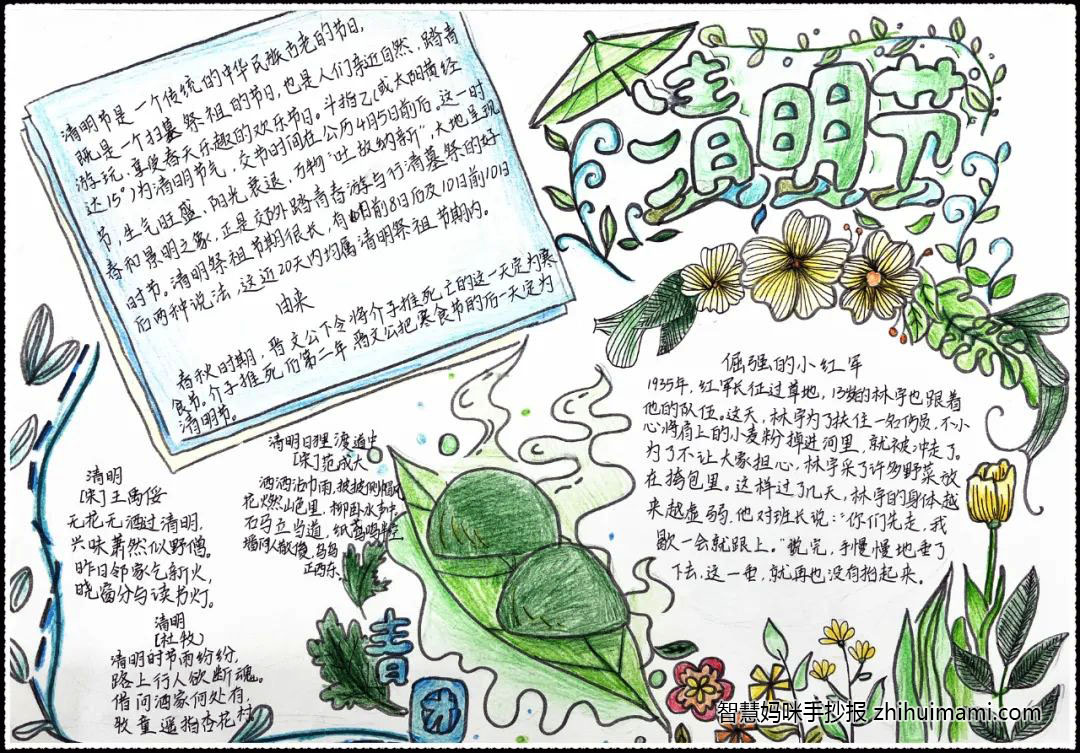 清明节
清明节是一个传统的中华民族古老的节日，
既是一个扫墓祭祖的节日，也是人们亲近自然、踏青
游玩、享受春天乐趣的欢乐节日。斗指乙（或太阳黄经
达15°）为清明节气，交节时间在公历4月5日前后。这一时
节，生气旺盛、阳光衰退，万物“吐故纳新”，大地呈现
春和景明之象，正是郊外踏青春游与行清墓祭的好
时节。清明祭祖节期很长，有前8日后及10日前10日
后两种说法，这近20天内均属清明祭祖节期内。
由来
春秋时期，晋文公下令将介子推死亡的这一天定为寒
食节。介子推死后第二年晋文公把寒食节的后一天定为
清明节。
清明
[宋]王禹偁
无花无酒过清明，
兴味萧然似野僧。
昨日邻家乞新火，
晓窗分与读书灯。
清明
[杜牧]
清明时节雨纷纷，
路上行人欲断魂。
借问酒家何处有，
牧童遥指杏花村
清明日狸渡道中
[宋]范成大
洒洒沾巾雨，披披侧帽风
花燃山色里，柳卧水声中
石马立当道，纸鸢鸣半空
墦间人散後，乌鸟
正西东。
青
团
倔强的小红军
1935年，红军长征过草地，13岁的林宇也跟着
他的队伍。这天，林宇为了扶住一名伤员，不小
心将肩上的小麦粉掉进河里，就被冲走了。
为了不让大家担心，林宇采了许多野菜放
在挎包里。这样过了几天，林宇的身体越
来越虚弱，他对班长说：“你们先走，我
歇一会就跟上。”说完，手慢慢地垂了
下去，这一垂，就再也没有抬起来。
智慧妈咪手抄报 zhihuimami.com